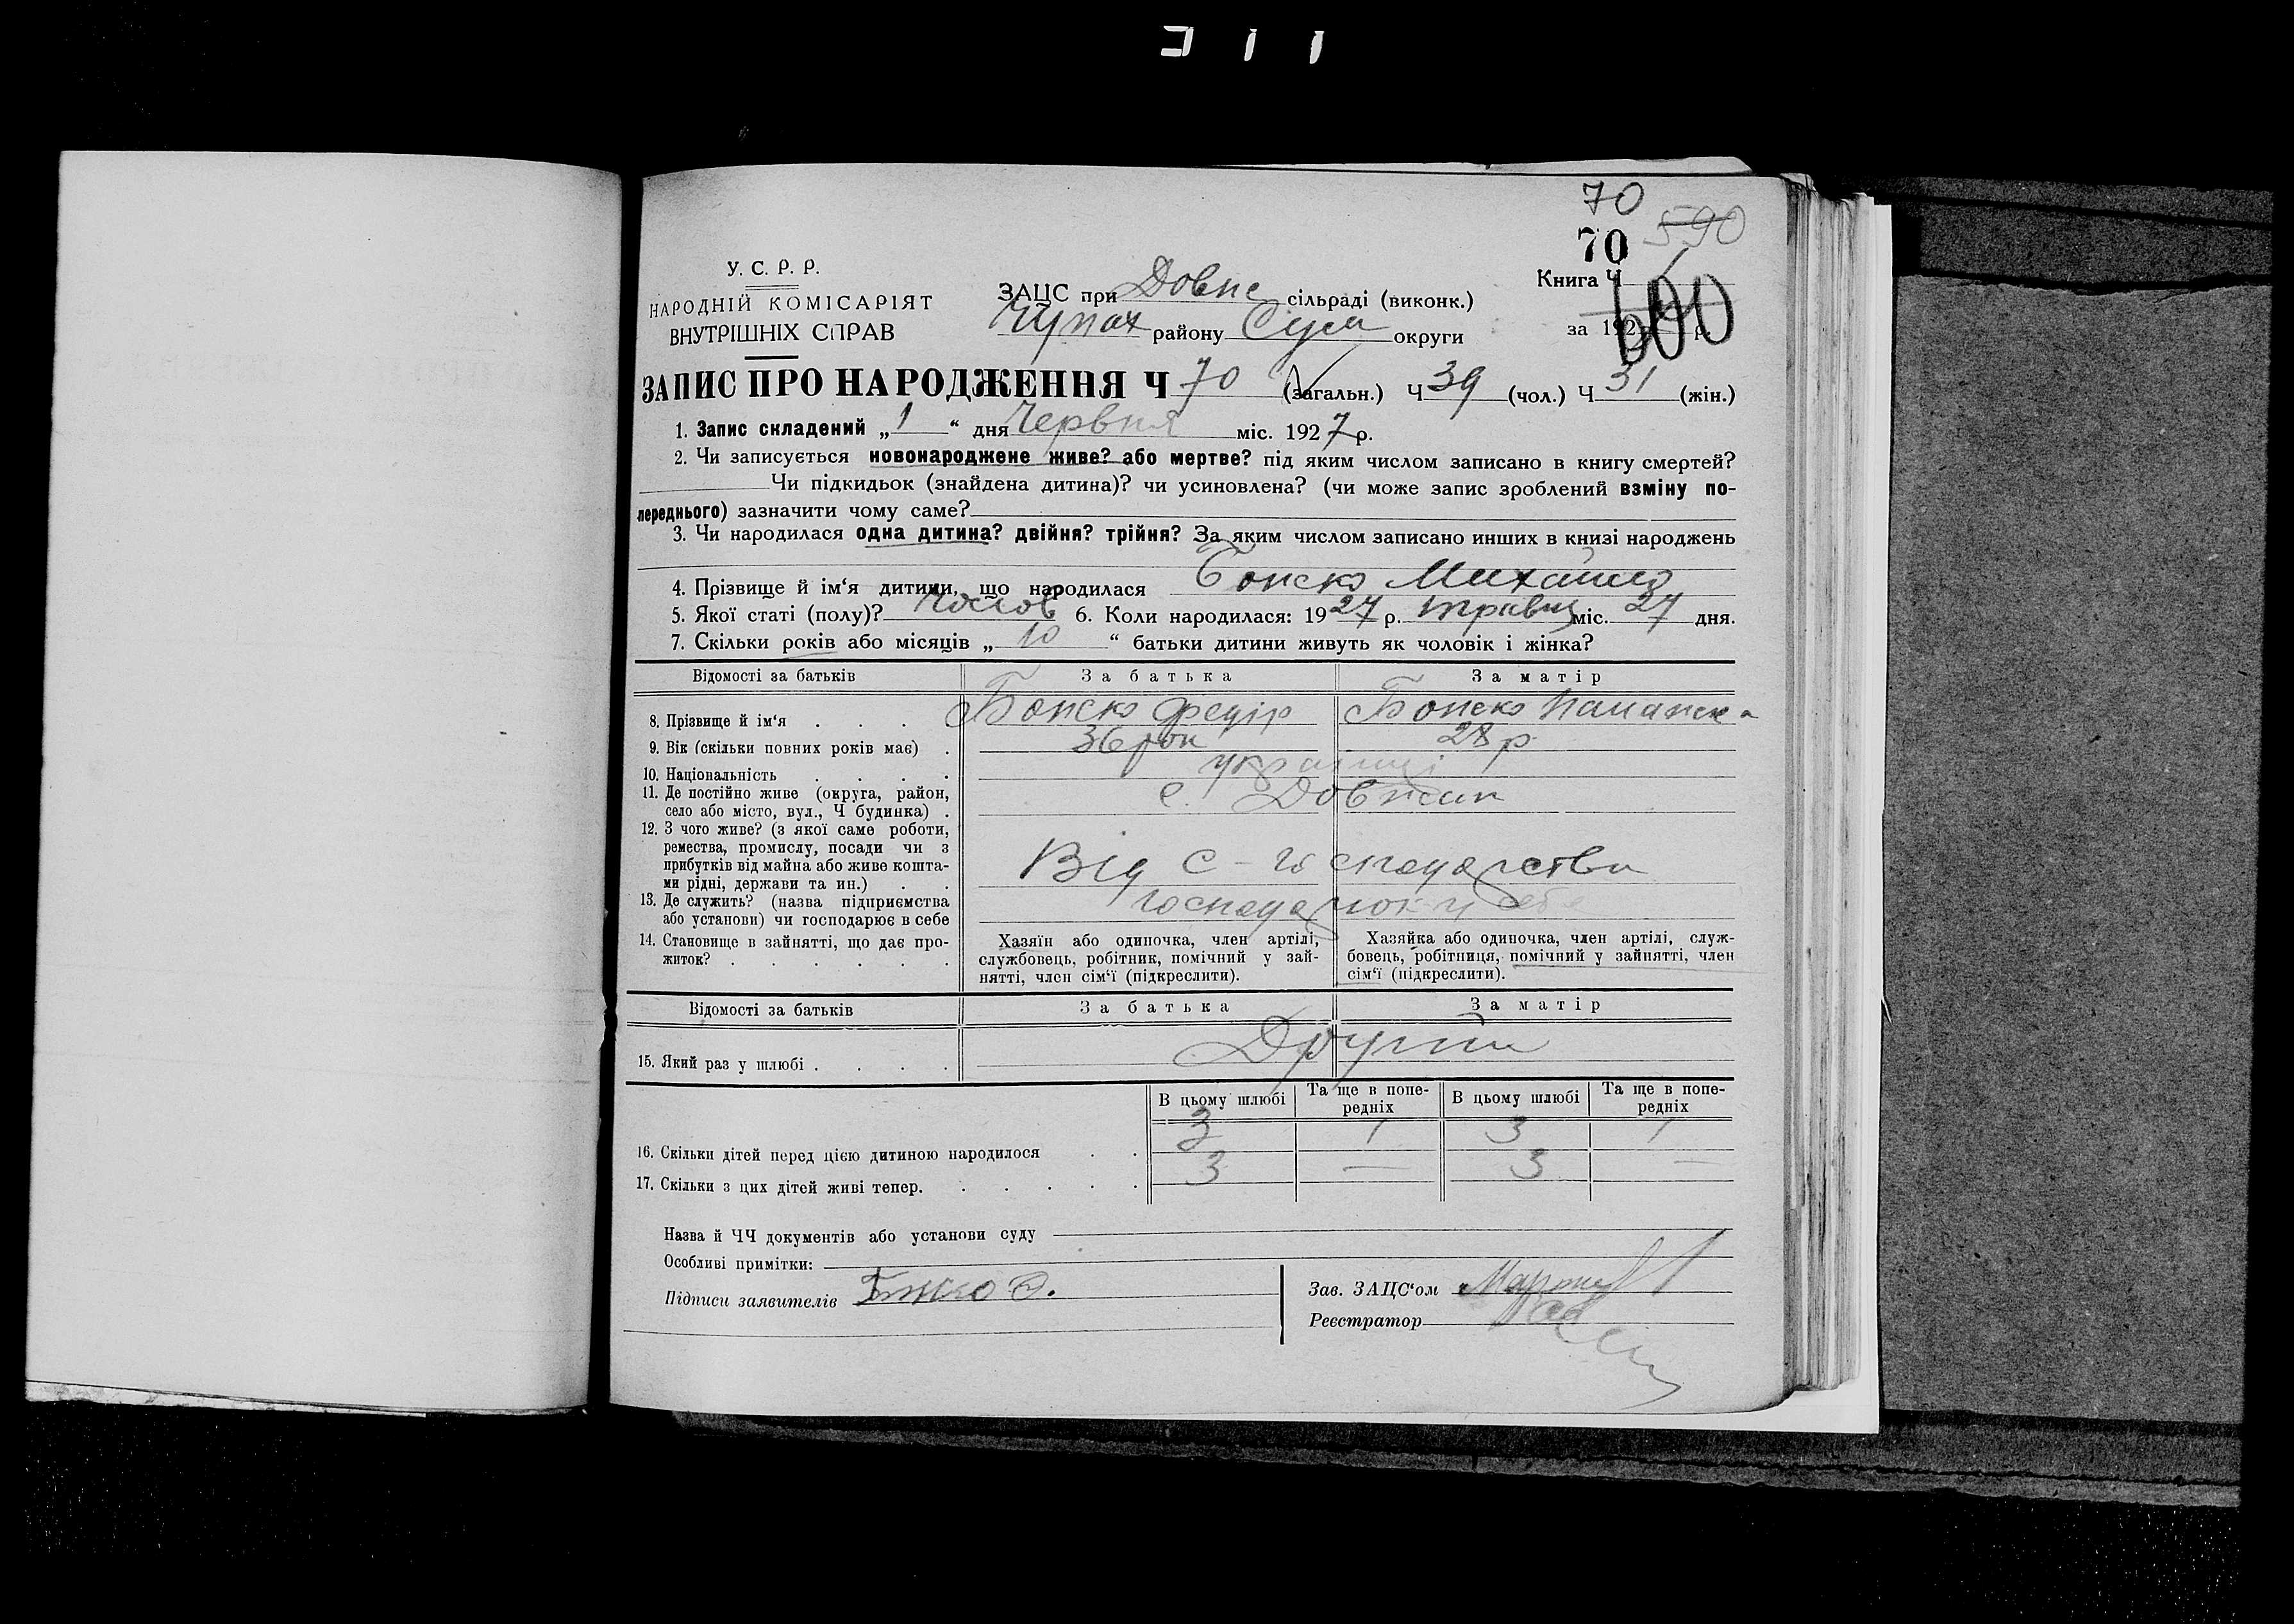 70
590
70
У. С. Р. Р.
НАРОДНІЙ КОМІСАРІЯТ
ВНУТРІШНІХ СПРАВ
ЗАЦС при Довж сільраді (виконк.)
Чупах району Сум округи
Книга Ч
за 192 р.
600
ЗАПИС ПРО НАРОДЖЕННЯ Ч 70 (загальн.) Ч 39 (чол.) Ч 31 (жін.)
1. Запис складений „ 1 “ дня Червня міс. 1927 р.
2. Чи записується новонароджене живе? або мертве? під яким числом записано в книгу смертей?
Чи підкидьок (знайдена дитина)? чи усиновлена? (чи може запис зроблений взміну по-
переднього) зазначити чому саме?
3. Чи народилася одна дитина? двійня? трійня? За яким числом записано инших в книзі народжень
4. Прізвище й ім‘я дитини, що народилася Михайло
5. Якої статі (полу)? Чолов 6. Коли народилася: 1927 р. травня міс. 27 дня.
7. Скільки років або місяців „ 10 “ батьки дитини живуть як чоловік і жінка?
Відомості за батьків За батька За матір
8. Прізвище й ім‘я . . . Федір
9. Вік (скільки повних років має) . 36 рок 28 р
10. Національність . . . . українці
11. Де постійно живе (округа, район,
село або місто, вул., Ч будинка) . с. Довжик
12. З чого живе? (з якої саме роботи,
ремества, промислу, посади чи з
прибутків від майна або живе кошта-
ми рідні, держави та ин.) . . Від с-господарства
13. Де служить? (назва підприємства
або установи) чи господарює в себе
14. Становище в зайнятті, що дає про-
житок? . . . . . .
Хазяїн або одиночка, член артілі,
службовець, робітник, помічний у зай-
нятті, член сім‘ї (підкреслити).
Хазяйка або одиночка, член артілі, служ-
бовець, робітниця, помічний у зайнятті, член
сім‘ї (підкреслити).
Відомості за батьків За батька За матір
15. Який раз у шлюбі . . . . Другий
В цьому шлюбі Та ще в попе-
редніх В цьому шлюбі Та ще в попе-
редніх
16. Скільки дітей перед цією дитиною народилося . . 3 1 3 1
17. Скільки з цих дітей живі тепер. . . . . . 3 — 3 —
Назва й ЧЧ документів або установи суду
Особливі примітки:
Підписи заявителів
Зав. ЗАЦС‘ом
Реєстратор